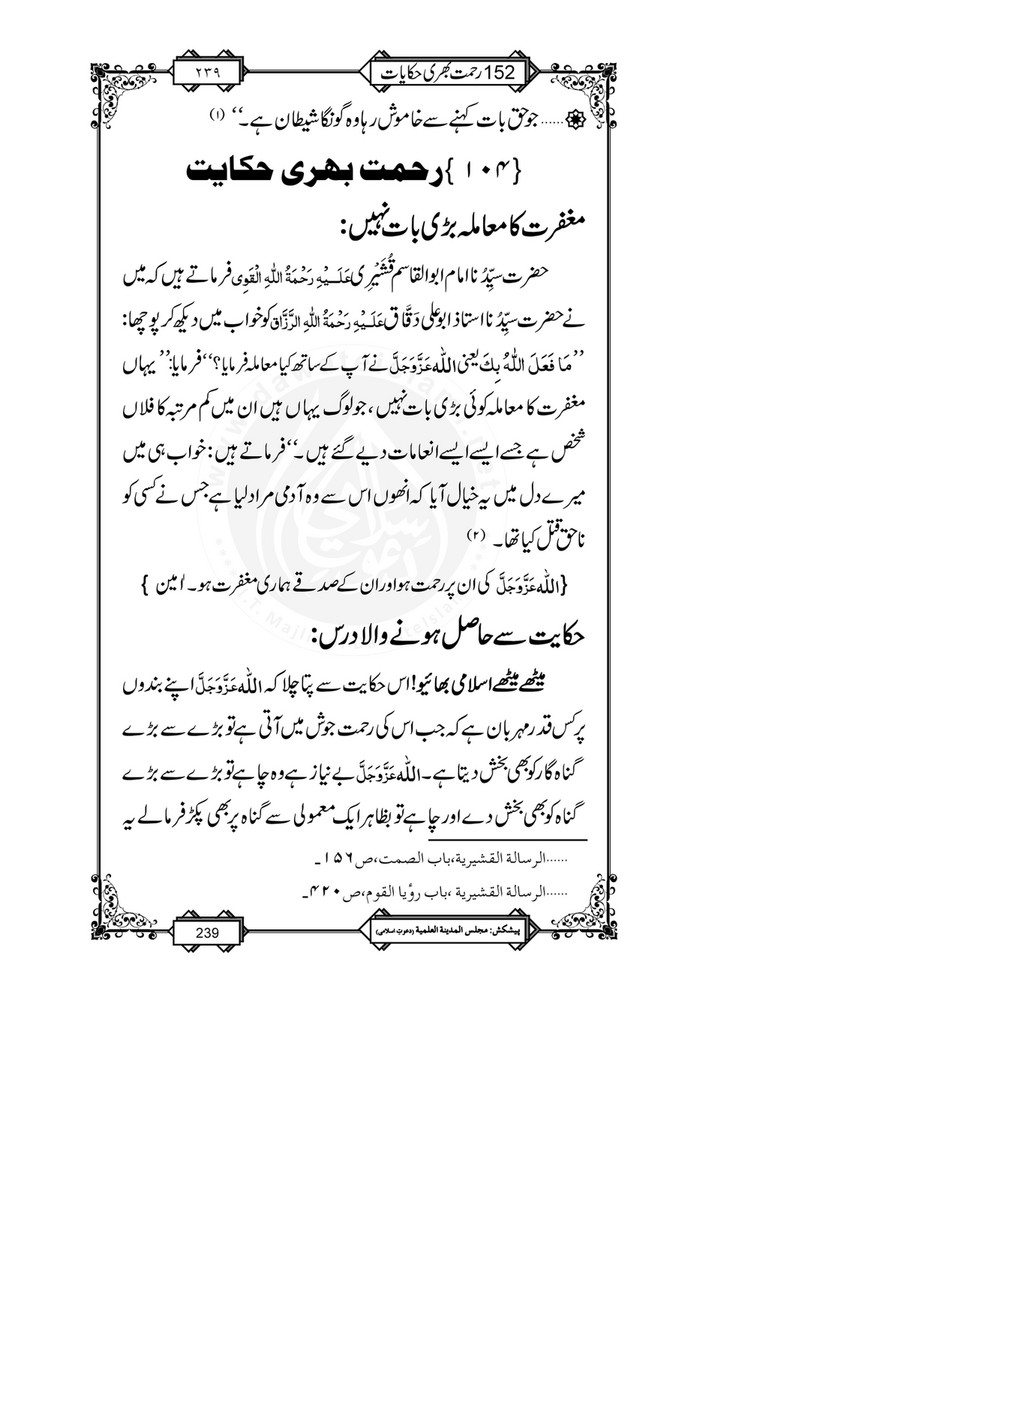 152 رحمت بھری حکایات
۲۳۹
......جو حق بات کہنے سے خاموش رہا وہ گونگا شیطان ہے۔‘‘ (۱)
{۱۰۴} رحمت بھری حکایت
مغفرت کا معاملہ بڑی بات نہیں:
حضرت سیِّدُنا امام ابوالقاسم قُشَیْرِی عَلَـیْهِ رَحْمَةُ اللهِ الْقَوِی فرماتے ہیں کہ میں
نے حضرت سیِّدُنا استاذ ابوعلی دَقَّاق عَلَـیْهِ رَحْمَةُ اللهِ الرَّزَّاق کو خواب میں دیکھ کر پوچھا:
’’مَا فَعَلَ اللهُ بِكَ یعنی اللہ عَزَّوَجَلَّ نے آپ کے ساتھ کیا معاملہ فرمایا؟‘‘ فرمایا: ’’یہاں
مغفرت کا معاملہ کوئی بڑی بات نہیں، جو لوگ یہاں ہیں ان میں کم مرتبہ کا فلاں
شخص ہے جسے ایسے ایسے انعامات دیے گئے ہیں۔‘‘ فرماتے ہیں: خواب ہی میں
میرے دل میں یہ خیال آیا کہ انھوں اس سے وہ آدمی مراد لیا ہے جس نے کسی کو
ناحق قتل کیا تھا۔ (۲)
{اللہ عَزَّوَجَلَّ کی ان پر رحمت ہو اور ان کے صدقے ہماری مغفرت ہو۔ اٰمین }
حکایت سے حاصل ہونے والا درس:
میٹھے میٹھے اسلامی بھائیو! اس حکایت سے پتا چلا کہ اللہ عَزَّوَجَلَّ اپنے بندوں
پر کس قدر مہربان ہے کہ جب اس کی رحمت جوش میں آتی ہے تو بڑے سے بڑے
گناہ گار کو بھی بخش دیتا ہے۔ اللہ عَزَّوَجَلَّ بے نیاز ہے وہ چاہے تو بڑے سے بڑے
گناہ کو بھی بخش دے اور چاہے تو بظاہر ایک معمولی سے گناہ پر بھی پکڑ فرمالے یہ
......الرسالة القشيرية،باب الصمت،ص۱۵۶۔
......الرسالة القشيرية ،باب رؤيا القوم،ص۴۲۰۔
پیشکش: مجلس المدینة العلمیة (دعوتِ اسلامی)
239